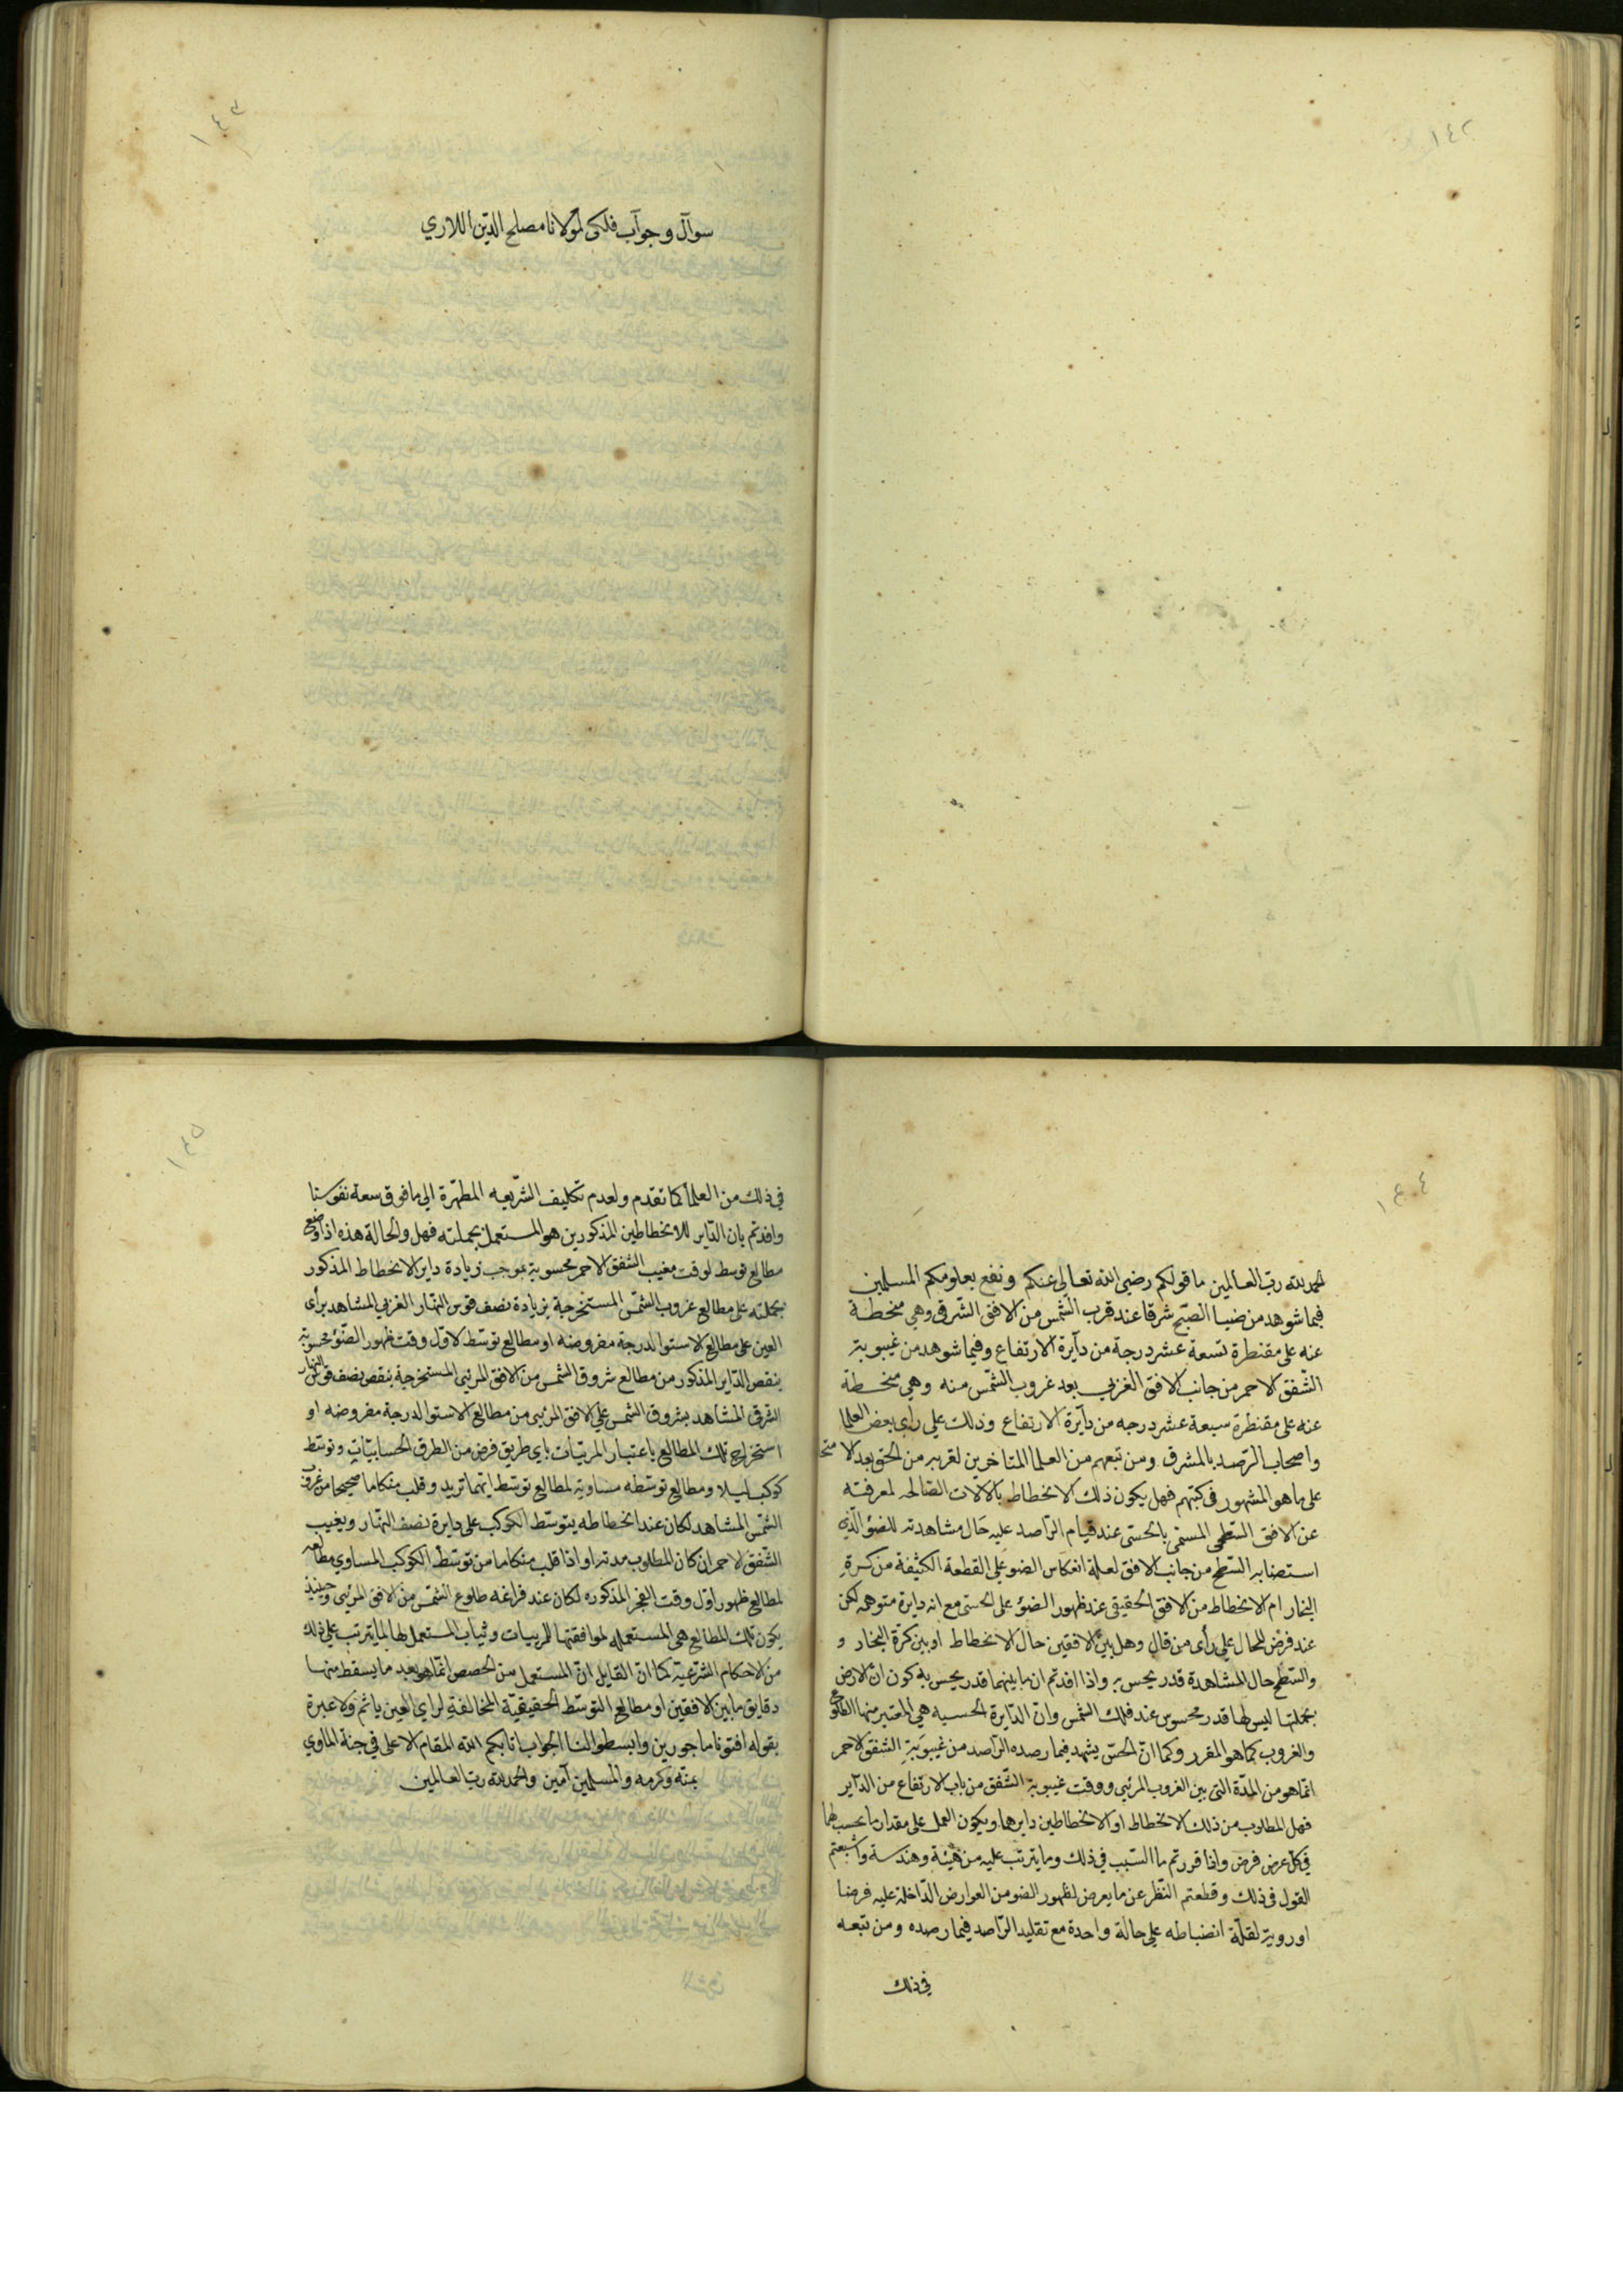 ١٤٢
١٤٣
سوآل وجوآب فلكى لمولانا مصلح الدّين اللاري
١٤٤
الحمد لله رب العالمين ما قولكم رضي الله تعالى عنكم ونفع بعلومكم المسلمين
فيما شوهد من ضيا الصبّح شرقا عند قرب الشمس من الافق الشّرقى وهي منحطة
عنه على مقنطرة تسعة عشر درجة من دآيرة الارتفاع وفيما شوهد من غيبوبة
الشفق الاحمر من جانب الافق الغربي بعد غروب الشّمس منه وهي منحطة
عنه على مقنطرة سبعة عشر درجه من دآيرة الارتفاع وذلك علي راى بعض العلما
واصحاب الرّصد بالمشرق ومن تبعهم من العلما المتاخرين لقربه من الحق بعد الامتحا
على ما هو المشهور في كتبهم فهل يكون ذلك الانحطاط بالالات الصّالحه لمعرفته
عن الافق السّطحى المسمى بالحسّى عند قيام الرّاصد عليه حال مشاهدته للضوّ الّذي
استضا به السّطح من جانب الافق لعلة انعكاس الضو على القطعة الكثيفة من كرة
البخار ام الانحطاط من الافق الحقيقى عند ظهور الضوّ على الحسّى مع انه دايرة متوهمه لكن
عند فرض المحال على رأى من قال وهل بين الافقين حال الانحطاط او بين كرّة البخار و
والسّطح حال المشاهدة قدر يحس به واذا افدتم ان ما بينهما قدر يحس به كون انّ الارض
بجملتها ليس لها قدر محسوس عند فلك الشمس وان الدّايرة الحسيه هي المعتبر منها الطلوع
والغروب كما هو المقرر وكما انّ الحسّ يشهد فيما رصده الرّاصد من غيبوبة الشفق الاحمر
انّما هو من المدّة التى بين الغروب المرئيى ووقت غيبوبة الشّفق من باب الارتفاع من الدّاير
فهل المطلوب من ذلك الانحطاط او الانحطاطين دايرهما ويكون العمل على مقدار ما بحسب لهما
في كلّ عرض فرض واذا قررتم ما السّبب في ذلك وما يترتّب عليه من هيئة وهندسة واشبعتم
القول في ذلك وقطعتم النّظر عن ما يعرض لظهور الضو من العوارض الدّاخلة عليه فرضا
او روية لقلّة انضباطه على حالة واحدة مع تقليد الرّاصد فيما رصده ومن تبعه
في ذلك
١٤٥
في ذلك من العلمآ كما تقدم ولعدم تكليف الشّريعه المطهّرة الى ما فوق سعة نفوسنا
وافدتم بان الدّاير للانحطاطين المذكورين هو المستعمل بجملته فهل والحالة هذه اذا وضع
مطالع توسط لوقت مغيب الشفق الاحمر محسوبة بموجب زيادة داير الانحطاط المذكور
بجملته على مطالع غروب الشمّس المستخرجة بزيادة نصف قوس النهار الغربي المشاهد برأى
العين على مطالع الاستوا لدرجة مفروضه او مطالع توسّط لاوّل وقت ظهور الضّوء محسوبة
بنقص الدّاير المذكور من مطالع شروق الشمس من الافق المرئيى المستخرجة بنقص نصف قوس النهار
الشرقى المشاهد بشروق الشمس على الافق المرئيى من مطالع الاستوا لدرجة مفروضه او
استخراج تلك المطالع باعتبار المرئيات باي طريق فرض من الطرق الحسابيّات وتوسّط
كوكب ليلا ومطالع توسّطه مساوية لمطالع توسّط ايّهما تريد وقلب منكاما صحيحا من غروب
الشمّس المشاهد لكان عند انحطاطه يتوسّط الكوكب على دايرة نصف النهّار ويغيب
الشّفق الاحمر ان كان المطلوب مدته او اذا قلب منكاما من توسّط الكوكب المساوي مطالعه
لمطالع ظهور اوّل وقت الفجر المذكوره لكان عند فراغه طلوع الشّمس من الافق المرئيى وحينيذ
يكون تلك المطالع هي المستعمله لموافقتها المرييات ويُثاب المستعمل لها لما يترتب على ذلك
من الاحكام الشرّعيّة كما ان القايل انّ المستعمل من الحصص انّما هو بعد ما يسقط منها
دقايق ما بين الافقين او مطالع التوسّط الحقيقيّة المخالفة لراي العين ياثم ولا عبرة
بقوله افتونا ماجورين وابسطوا لنا الجواب اثابكم الله المقام الاعلى في جنة الماوي
بمنّه وكرمه والمسلمين آمين والحمد لله رب العالمين